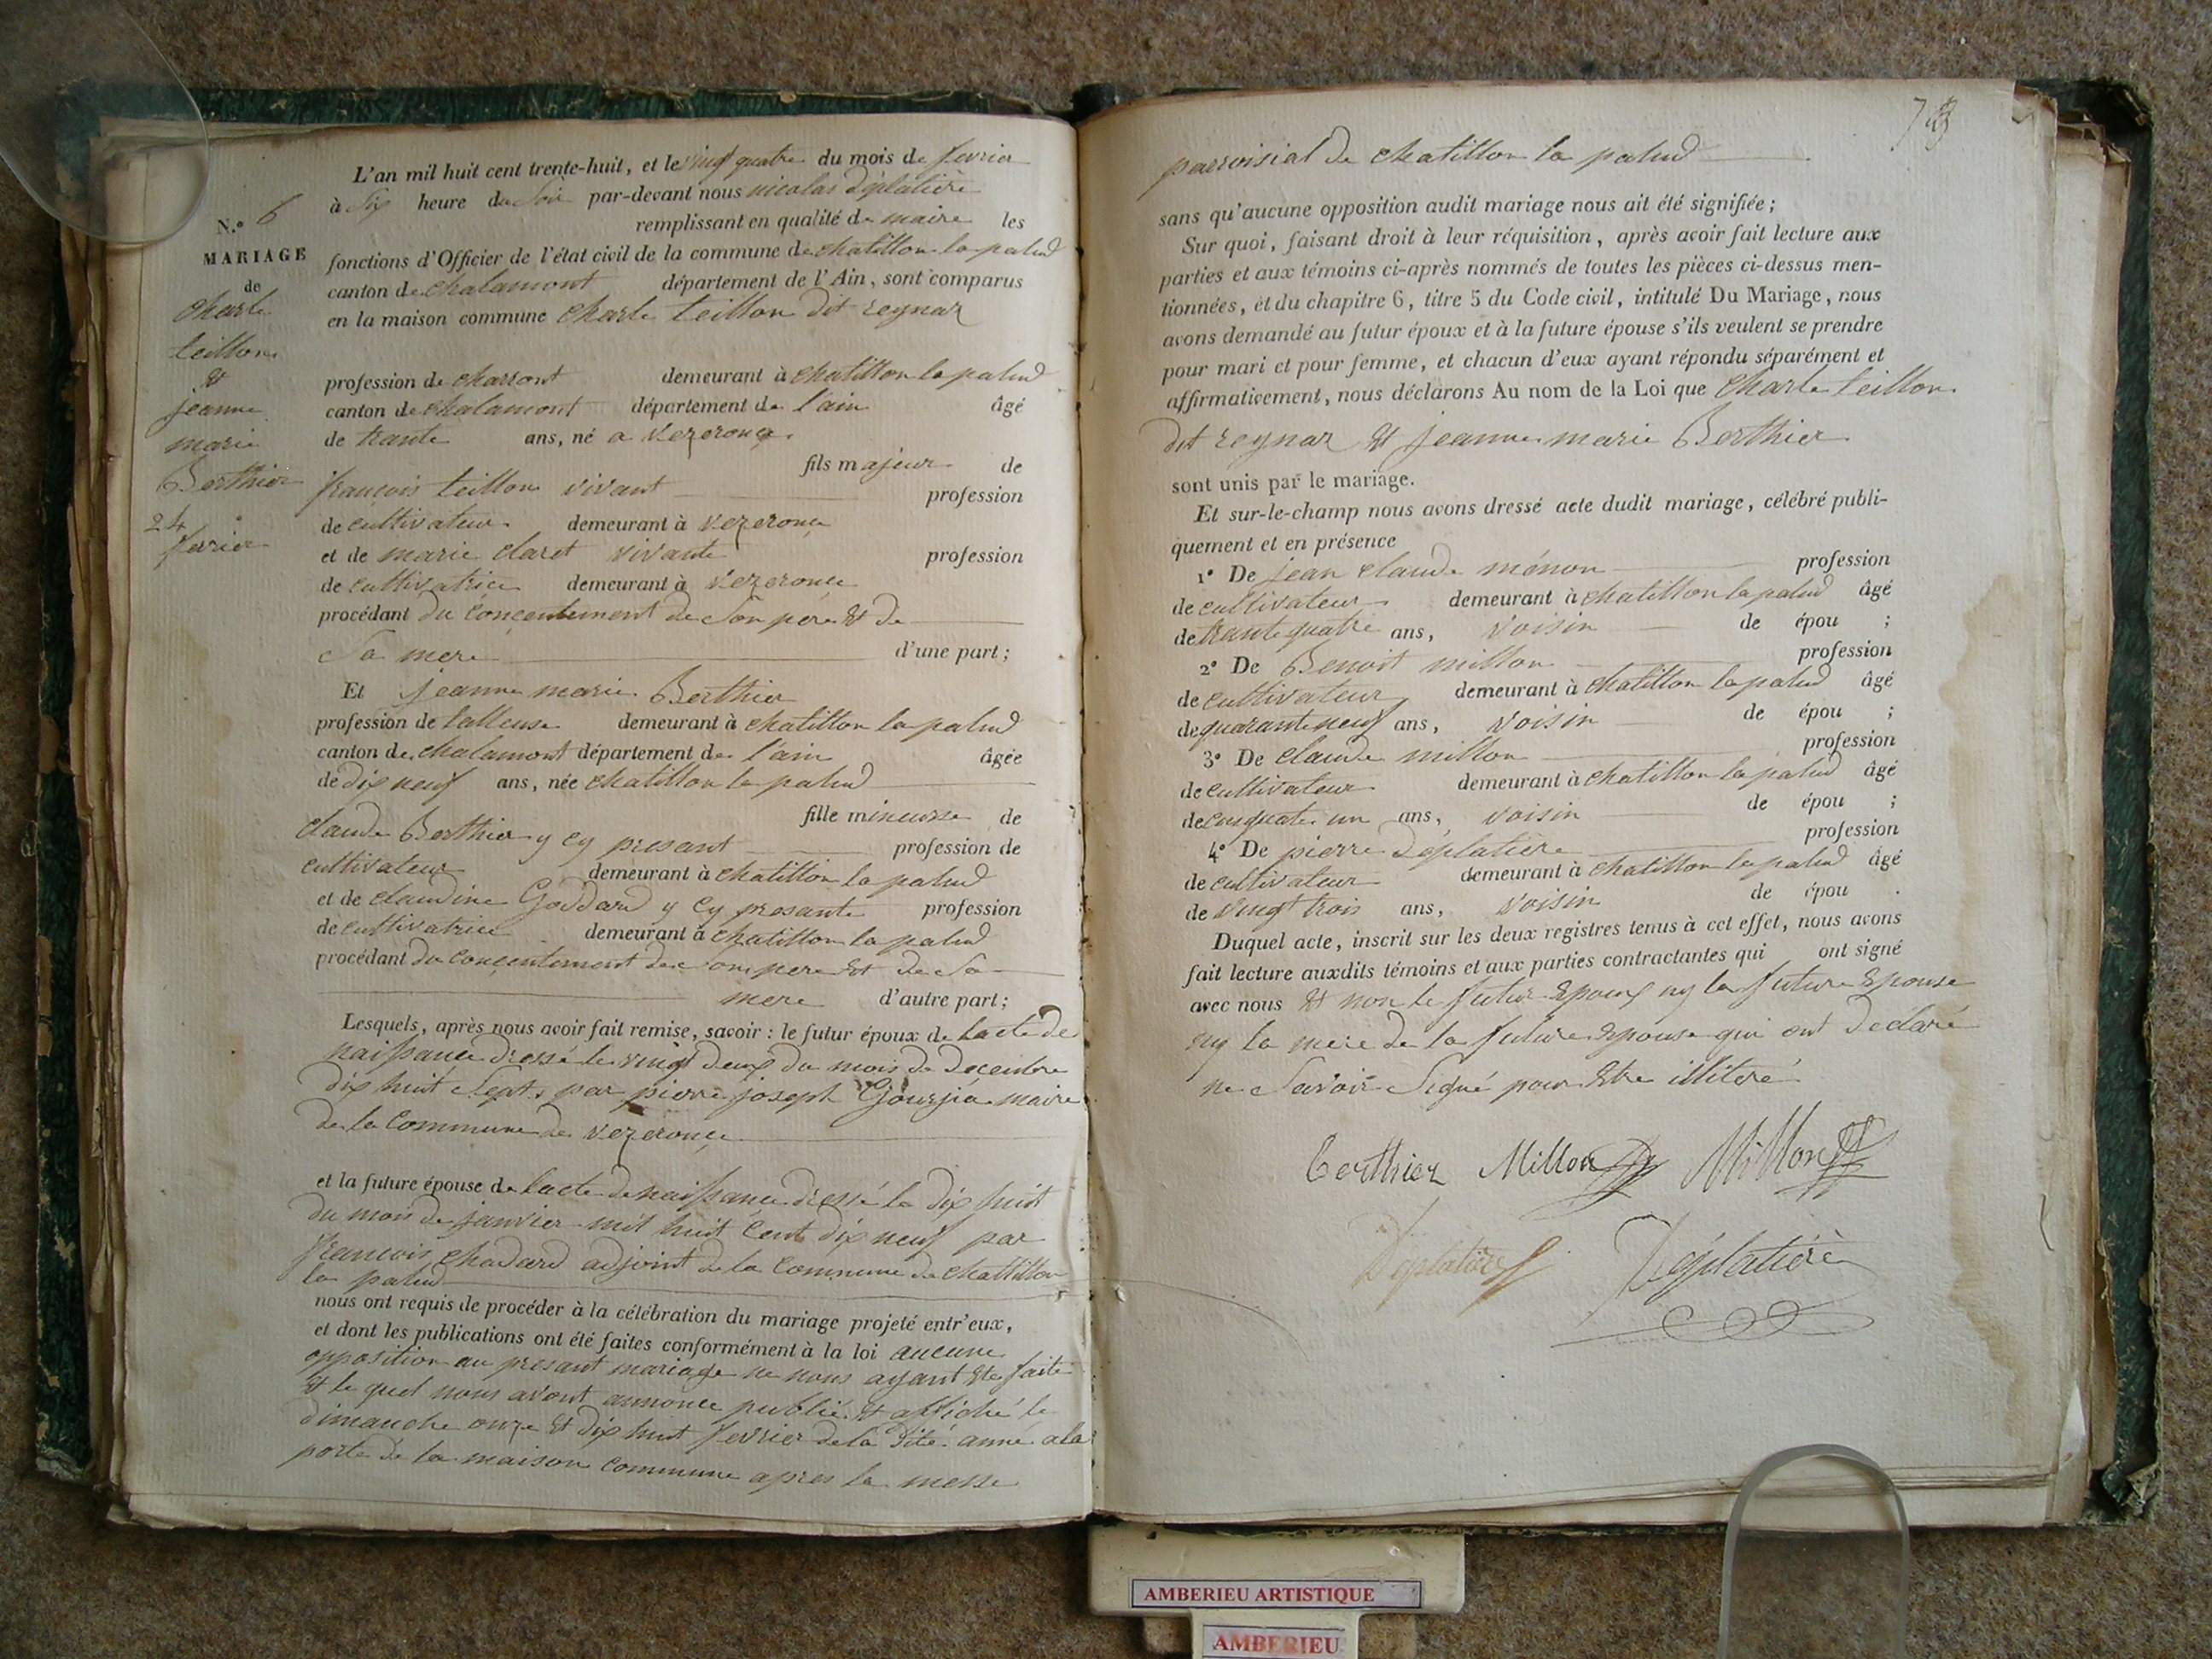 L'an mil huit cent trente-huit, et le vingt quatre du mois de fevrier
à Six heure du Soir par-devant nous nicolas déplatière
remplissant en qualité de maire les
fonctions d'Officier de l'état civil de la commune de chatillon la palud
canton de chalamont département de l'Ain, sont comparus
en la maison commune Charle teillon dit reynar
profession de charront demeurant à chatillon la palud
canton de chalamont département de l'ain âgé
de trante ans, né a vezeronçe.
fils majeur de
francois teillon vivant profession
de cultivateur demeurant à vezeronçe
et de marie claret vivante profession
de cultivatrice demeurant à vezeronçe
procédant du conçentement de Son père et de
Sa mere d'une part;
Et jeanne marie Berthier
profession de talleuse demeurant à chatillon la palud
canton de chalamont département de l'ain âgée
de dix neuf ans, née chatillon la palud
fille mineurse de
claude Berthier y cy present profession de
cultivateur demeurant à chatillon la palud
et de claudine Goddard y cy presante profession
de cultivatrice demeurant à chatillon la palud
procédant du conçentement de Son pere et de Sa
mere d'autre part;
Lesquels, après nous avoir fait remise, savoir : le futur époux de lacte de
naissance dressé le vingt deux du mois de decembre
dix huit Sept, par pierre joseph maire
de la commune de vezeronçe
et la future épouse de lacte de naissance dressé le dix huit
du mois de janvier mil huit cent dix neuf par
francois chadard adjoint de la commune de chattillon
la palud
nous ont requis de procéder à la célébration du mariage projeté entr'eux,
et dont les publications ont été faites conformément à la loi aucune
opposition au presant mariage ne nous ayant ete faite
et le quel nous avont annonce publié et affiché le
dimanche onze et dix huit fevrier de la dite anné a la
porte de la maison commune apres la messe
N.º 6
MARIAGE
de
charle
teillon
et
jeanne
marie
Berthier
24
fevrier
parroisial de chatillon la palud
sans qu'aucune opposition audit mariage nous ait été signifiée;
Sur quoi, faisant droit à leur réquisition, après avoir fait lecture aux
parties et aux témoins ci-après nommés de toutes les pièces ci-dessus men-
tionnées, et du chapitre 6, titre 5 du Code civil, intitulé Du Mariage, nous
avons demandé au futur époux et à la future épouse s'ils veulent se prendre
pour mari et pour femme, et chacun d'eux ayant répondu séparément et
affirmativement, nous déclarons Au nom de la Loi que Charle teillon
dit reynar et jeanne marie Berthier
sont unis par le mariage.
Et sur-le-champ nous avons dressé acte dudit mariage, célébré publi-
quement et en présence
1º De jean claude ménon profession
de cultivateur demeurant à chatillon la palud âgé
de trante quatre ans, voisin de épou ;
2º De Benoit millon profession
de cultivateur demeurant à chatillon la palud âgé
de quarante neuf ans, voisin de épou ;
3º De claude millon profession
de cultivateur demeurant à chatillon la palud âgé
de cinquate un ans, voisin de épou ;
4º De pierre déplatière profession
de cultivateur demeurant à chatillon la palud âgé
de vingt trois ans, voisin de épou .
Duquel acte, inscrit sur les deux registres tenus à cet effet, nous avons
fait lecture auxdits témoins et aux parties contractantes qui ont signé
avec nous et non le futur epoux ny la future epouse
ny la mere de la future epouse qui ont declaré
ne Savoir Signé pour etre illiteré
berthier Millon Millon
Déplatière Déplatière
AMBERIEU ARTISTIQUE
AMBERIEU